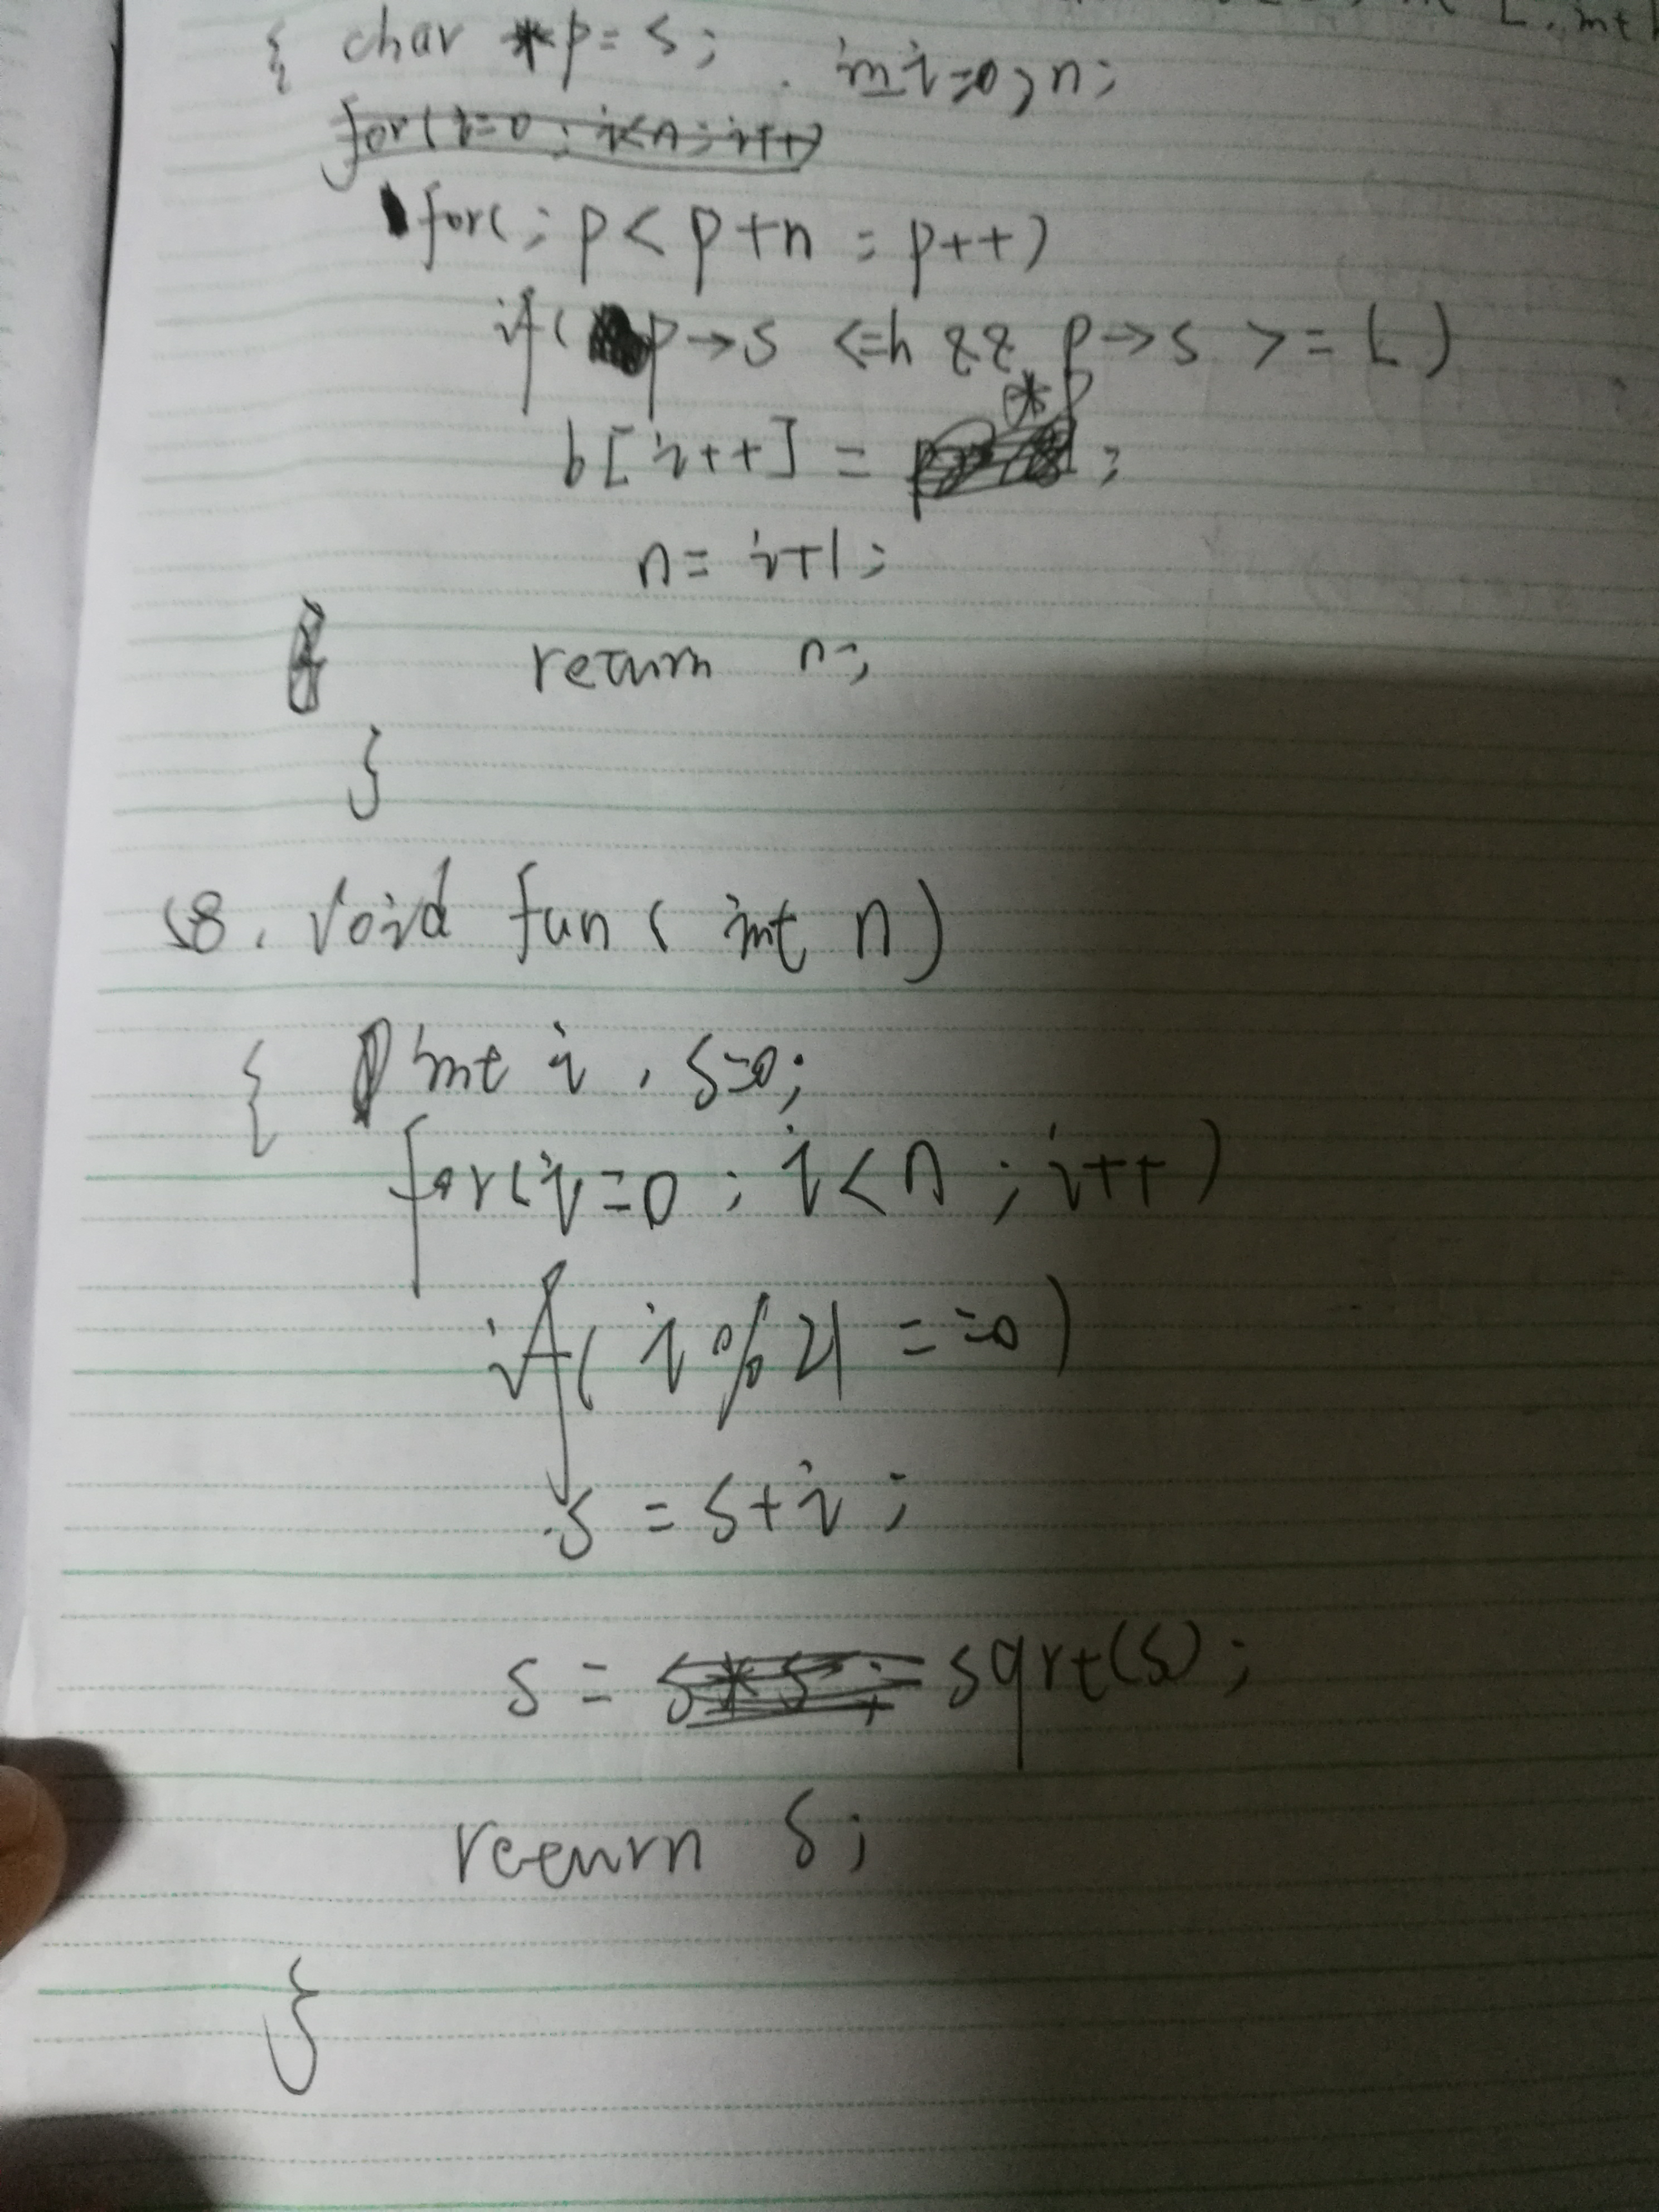 L, int h
{ char *p = s; int i=0, n;
for(i=0; i<n; i++)
for(; p < p+n ; p++)
if( p->s <=h && p->s >= L )
b[i++] = *p ;
n = i+1;
return n;
}
58. void fun( int n)
{ int i, s=0;
for(i=0; i<n ; i++)
if( i%21 ==0)
s = s+i ;
s = s*s; sqrt(s);
return s;
}